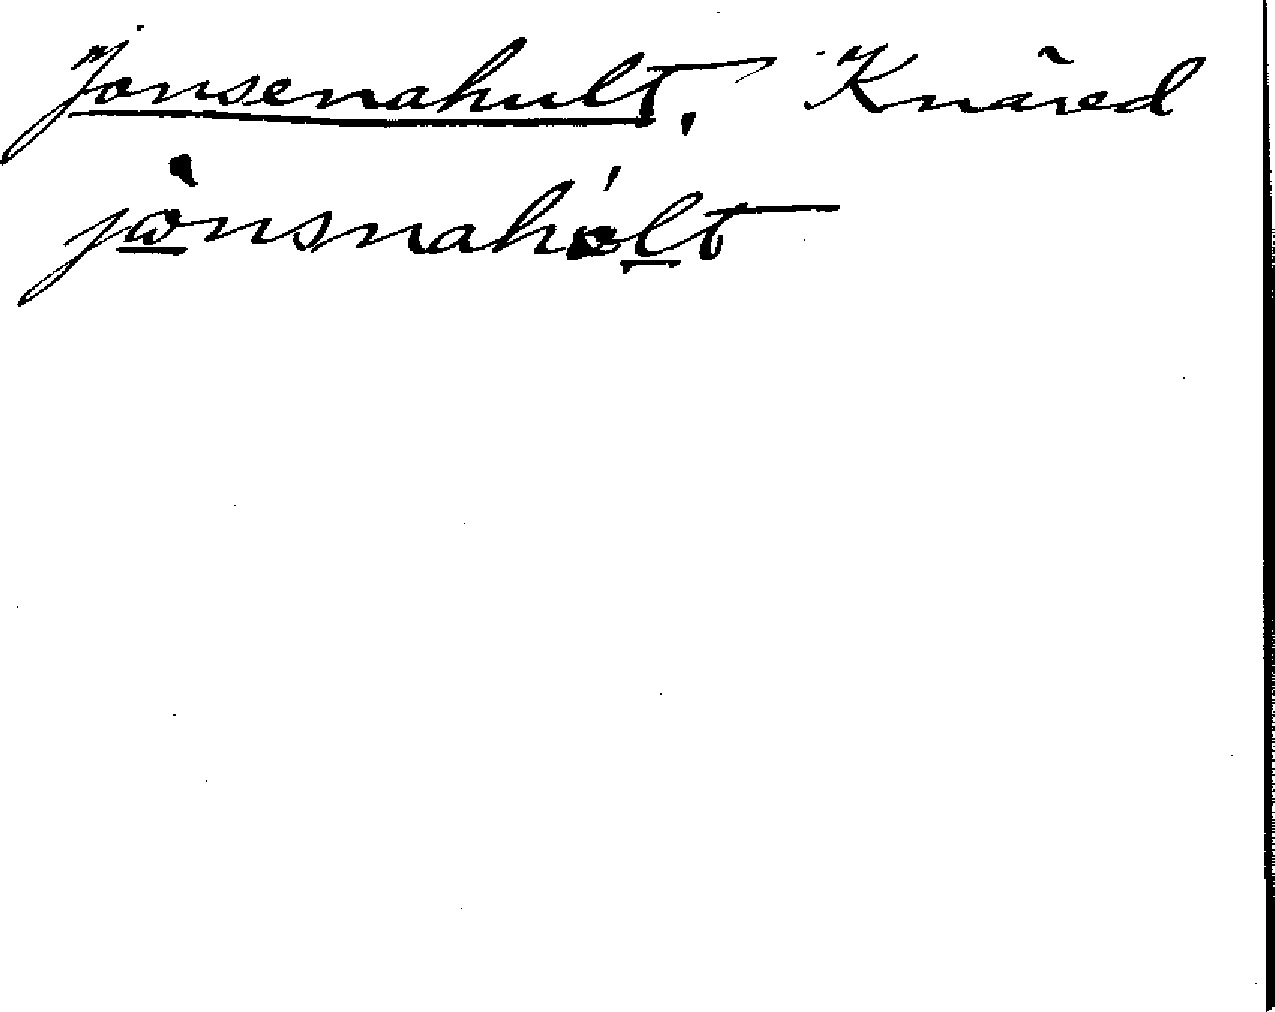 Jonsenahult, Knäred
jònsnahólt